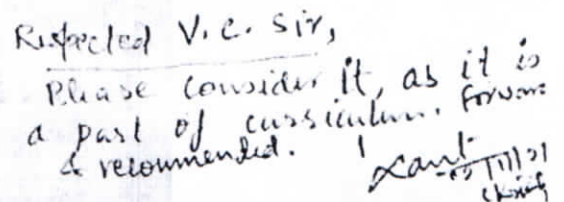 Respected V.C. Sir,
Please consider it, as it is
a part of curriculum. Forwar
& recommended.